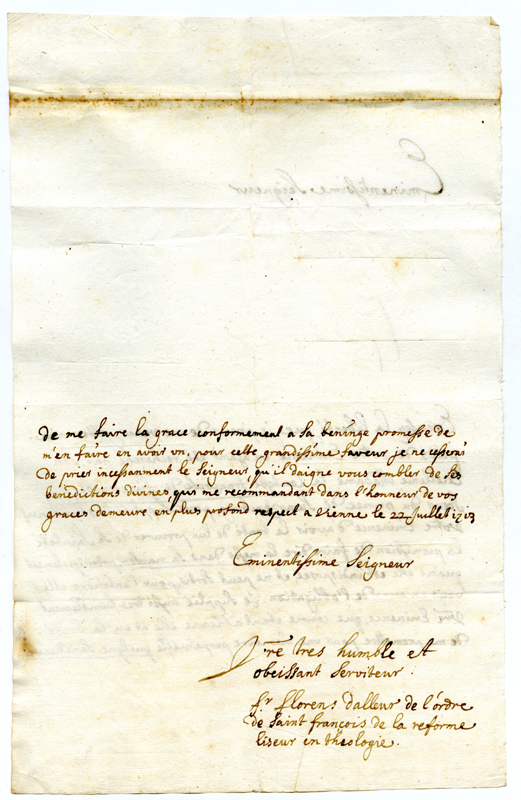 de me faire la grace conformement a sa beninge promesse de
m'en faire en avoir vn, pour cette grandissime faveur je ne cesserai
de prier incessanment le Seigneur, qu'il daigne vous combler de ses
benedictions divines, qui me recommandant dans l'honneur de vos
graces demeure en plus profond respect a vienne le 22 Juillet 1713
Eminentissime Seigneur
Vre tres humble et
obeissant serviteur.
fr florens dalleur de l'ordre
de saint françois de la reforme
liseur en theologie.